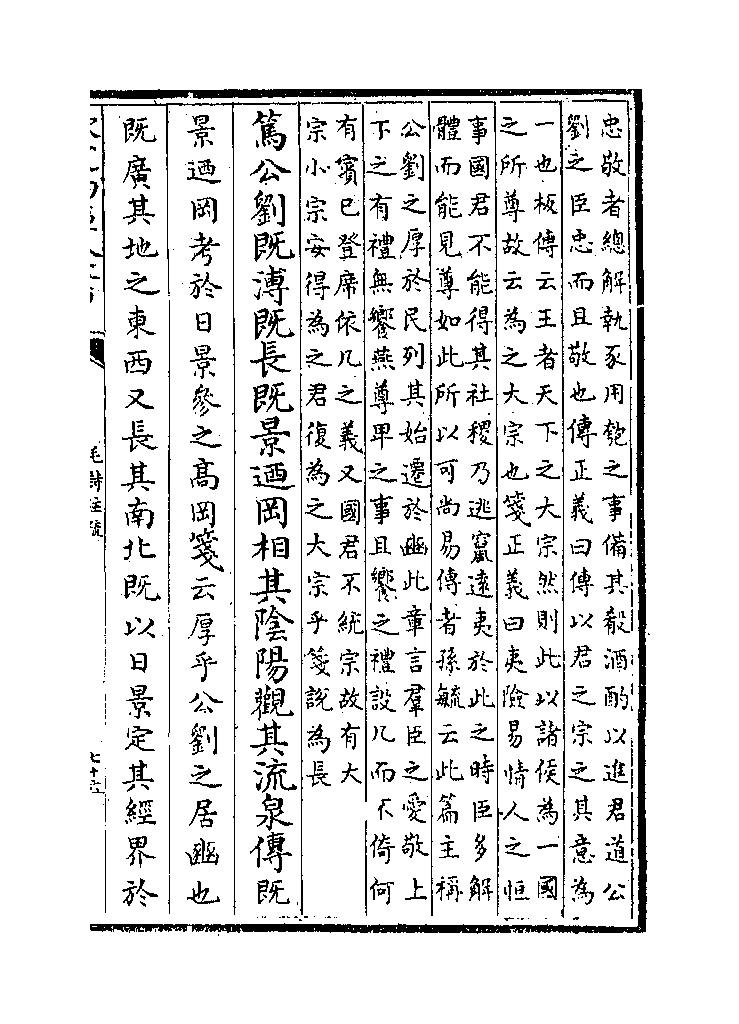 忠敬者總解執豕用匏之事備其殽酒酌以進君道公
劉之臣忠而且敬也傳正義曰傳以君之宗之其意為
一也板傳云王者天下之大宗然則此以諸侯為一國
之所尊故云為之大宗也箋正義曰夷險易情人之恒
事國君不能得其社稷乃逃竄遠夷於此之時臣多解
體而能見尊如此所以可尚易傳者孫毓云此篇主稱
公劉之厚於民列其始遷於豳此章言羣臣之愛敬上
下之有禮無饗燕尊卑之事且饗之禮設几而不倚何
有賓已登席依几之義又國君不統宗故有大
宗小宗安得為之君復為之大宗乎箋說為長
篤公劉既溥既長既景迺岡相其陰陽觀其流泉傳既
景迺岡考於日景參之高岡箋云厚乎公劉之居豳也
既廣其地之東西又長其南北既以日景定其經界於
毛詩注疏
七十六